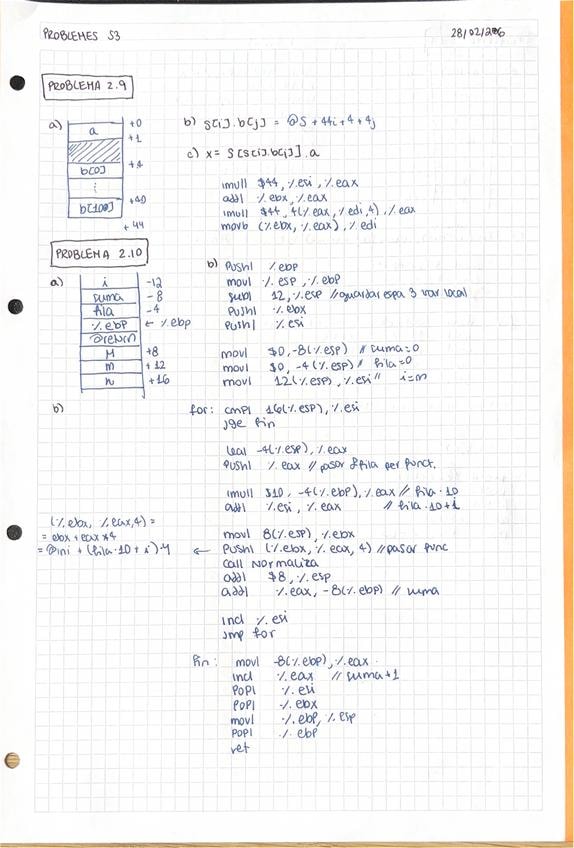 PROBLEMES S3
28/02/2006
PROBLEMA 2.9
a)
a +0
+1
b[0] +4
⋮
b[100] +40
+44
b) s[i].b[j] = @S + 44i + 4 + 4j
c) x = S[s[i].b[j]].a
imull $44, %esi, %eax
addl %ebx, %eax
imull $44, 4(%eax, %edi, 4), %eax
movb (%ebx, %eax), %edi
PROBLEMA 2.10
a)
i -12
suma -8
fila -4
%ebp ← %ebp
@return
M +8
m +12
n +16
b) Pushl %ebp
movl %esp, %ebp
subl 12, %esp // guardar espa 3 var local
Pushl %ebx
Pushl %esi
movl $0, -8(%esp) // suma=0
movl $0, -4(%esp) // fila=0
movl 12(%esp), %esi // i=m
b)
for: cmpl 16(%esp), %esi
Jge fin
leal -4(%esp), %eax
Pushl %eax // pasar @fila per funct.
imull $10, -4(%ebp), %eax // fila·10
addl %esi, %eax // fila·10+i
movl 8(%esp), %ebx
← Pushl (%ebx, %eax, 4) // pasar func
call Normaliza
addl $8, %esp
addl %eax, -8(%ebp) // suma
(%ebx, %eax,4) =
= ebx + eax*4
= @ini + (fila·10 + i)·4
incl %esi
Jmp for
fin: movl -8(%ebp), %eax
incl %eax // suma+1
POPl %esi
POPl %ebx
movl %ebp, %esp
POPl %ebp
ret